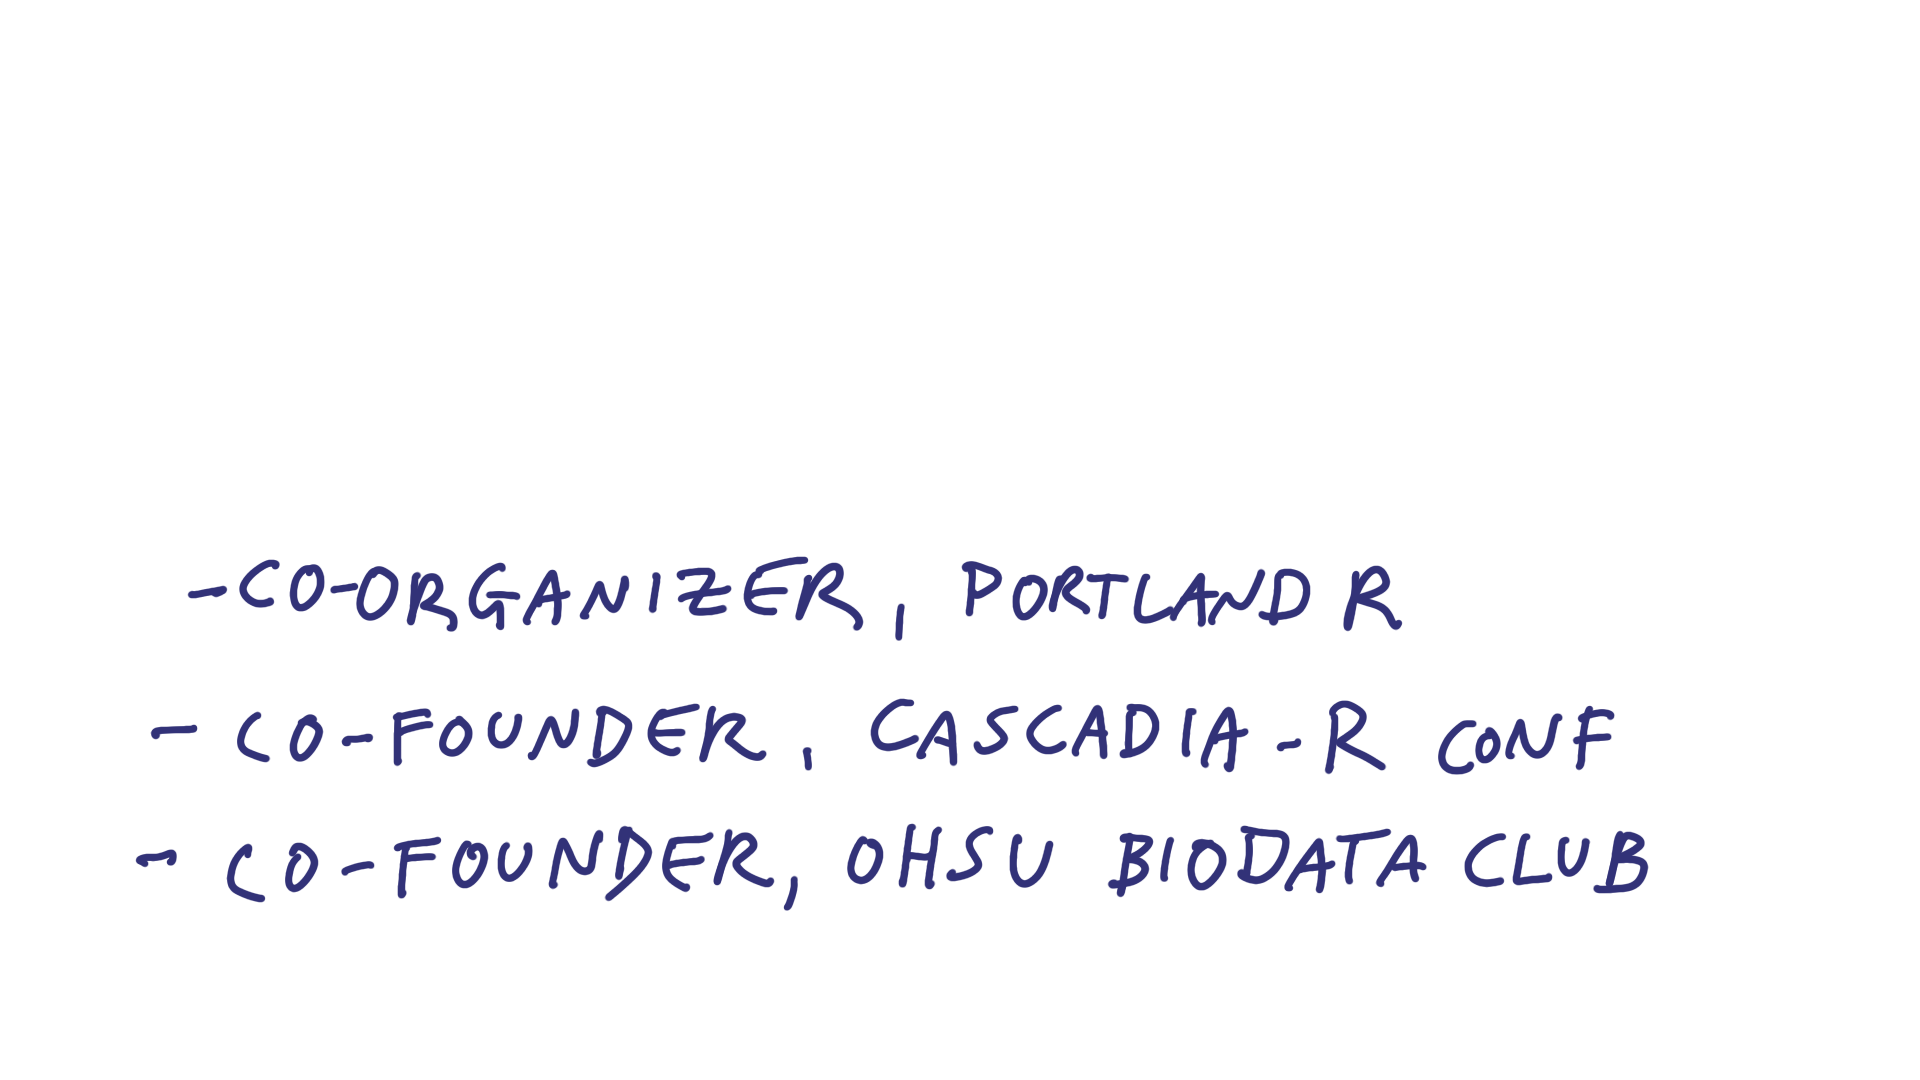 - CO-ORGANIZER, PORTLAND R
- CO-FOUNDER, CASCADIA-R CONF
- CO-FOUNDER, OHSU BIODATA CLUB